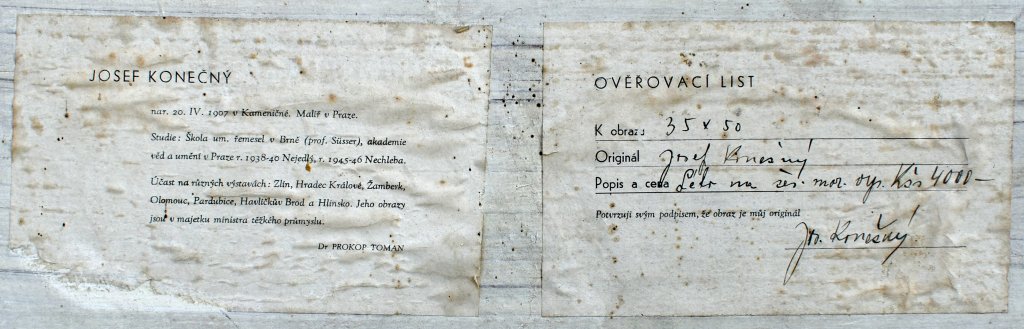 JOSEF KONEČNÝ
nar. 20. IV. 1907 v Kameničné. Malíř v Praze.
Studie: Škola um. řemesel v Brně (prof. Süsser), akademie
věd a umění v Praze r. 1938-40 Nejedlý, r. 1945-46 Nechleba.
Účast na různých výstavách: Zlín, Hradec Králové, Žamberk,
Olomouc, Pardubice, Havlíčkův Brod a Hlinsko. Jeho obrazy
jsou v majetku ministra těžkého průmyslu.
Dr PROKOP TOMAN
OVĚŘOVACÍ LIST
K obrazu 35 x 50
Originál Josef Konečný
Popis a cena Léto na čes. mor. vys. Kčs 4000 —
Potvrzuji svým podpisem, že obraz je můj originál
Jos. Konečný